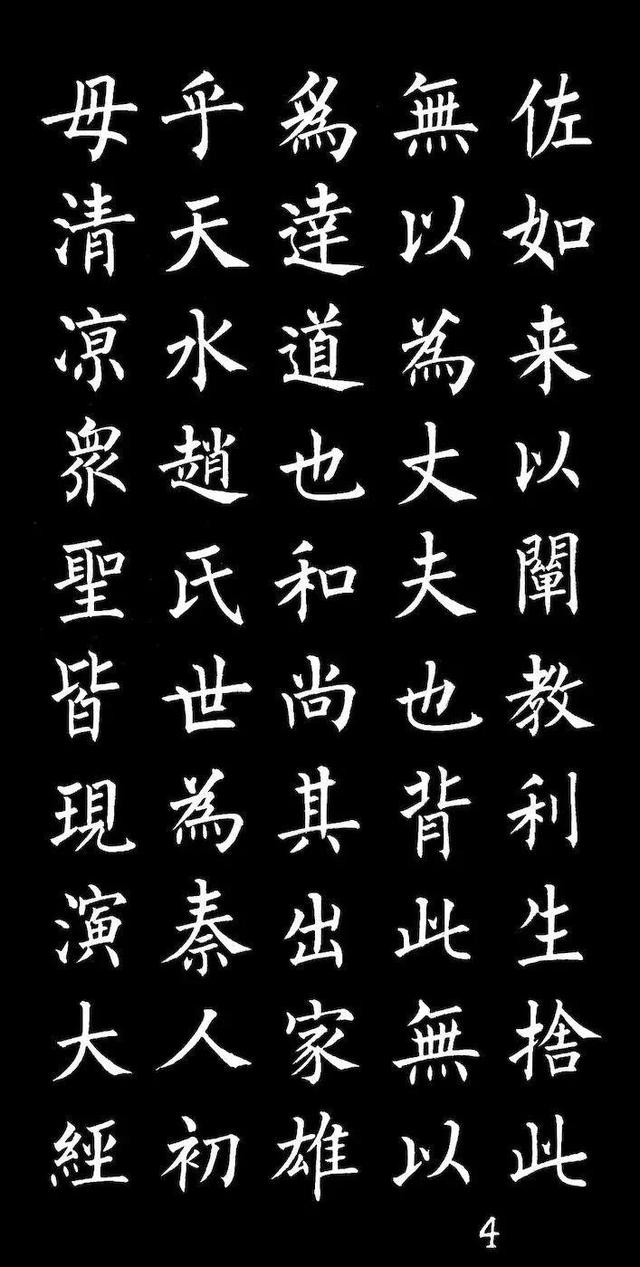 佐如来以闡教利生捨此
無以為丈夫也背此無以
為達道也和尚其出家雄
乎天水趙氏世為秦人初
母清涼衆聖皆現演大經
4